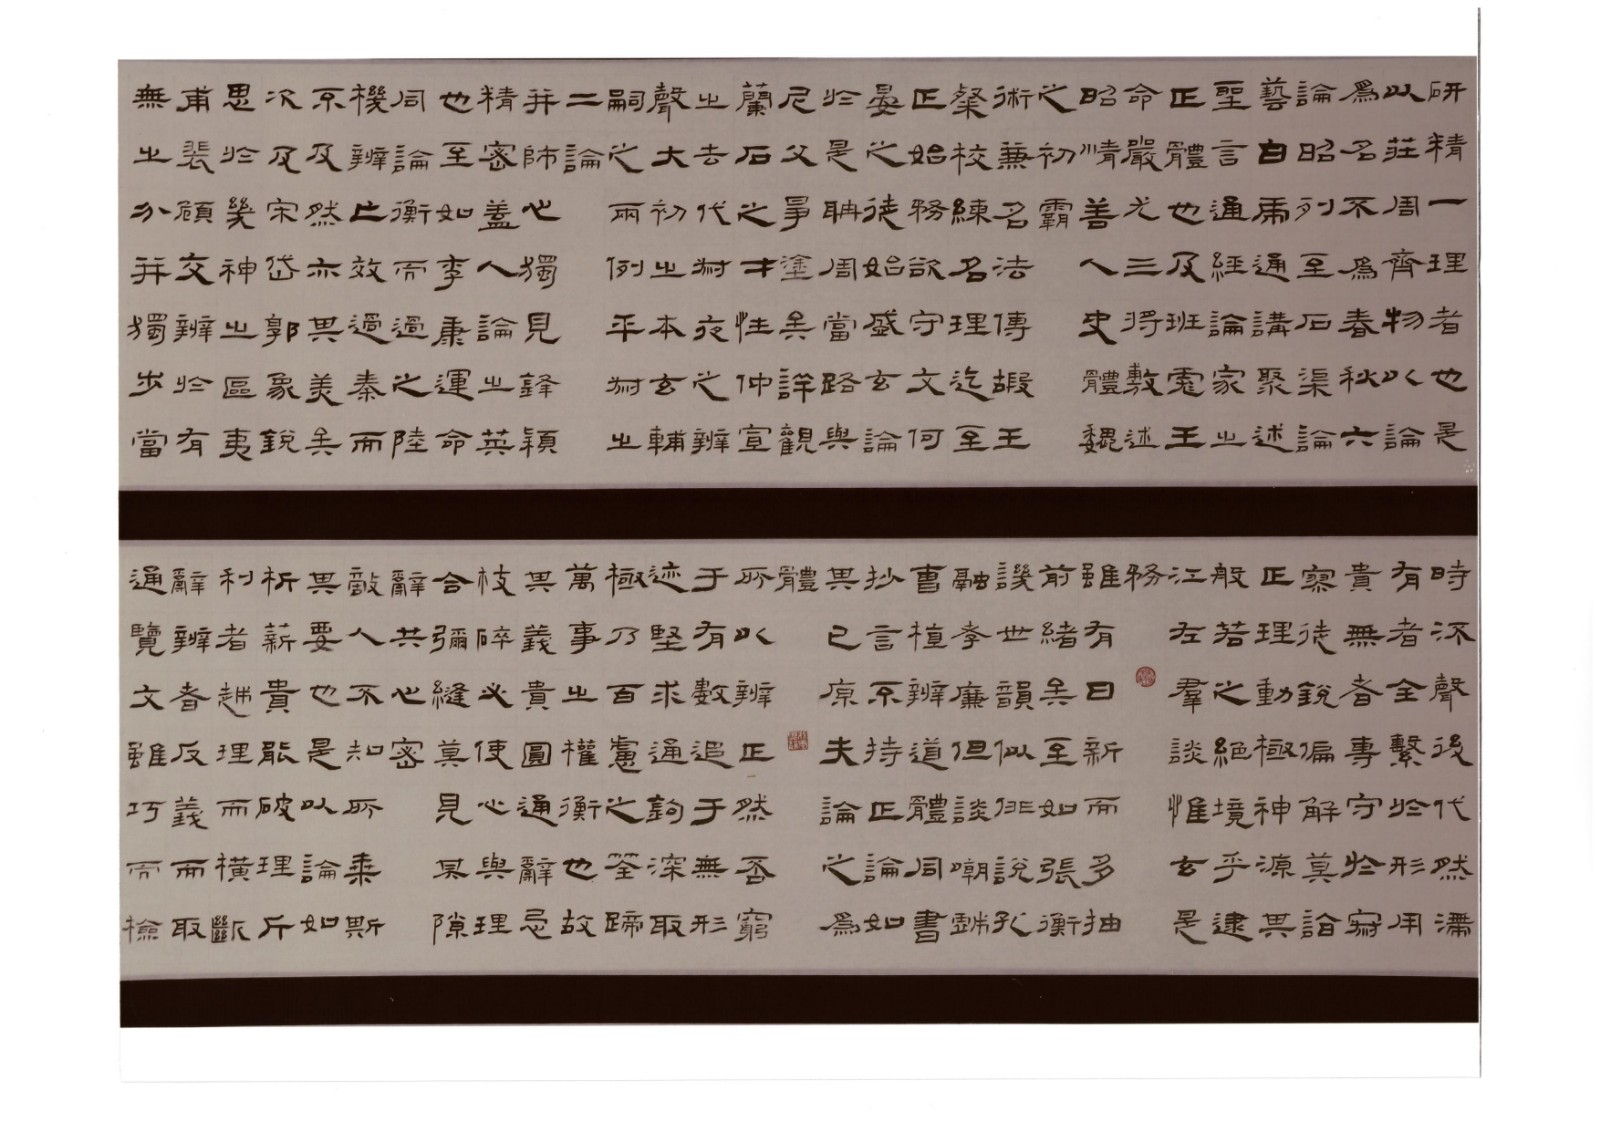 研精一理者也是
以莊周齊物以論
為名不為春秋六
論昭列至石渠論
藝白虎通講聚述
聖言通經論家之
正體也及班彪王
命嚴尤三將敷述
昭情善人史體魏
之初霸
術兼名法傅嘏王
粲校練名理迄至
正始務欲守文何
晏之徒始盛玄論
於是聃周當路與
尼父爭塗矣詳觀
蘭石之才性仲宣
之去代叔夜之辨
聲大初之本玄輔
嗣之兩例平叔之
二論
并師心獨見鋒穎
精密蓋人論之英
也至如李康運命
同論衡而過之陸
機辨亡效過秦而
不及然亦其美矣
次及宋岱郭象銳
思於幾神之區夷
甫裴頠交辨於有
無之分并獨步當
時流聲後代然滯
有者全繫於形用
貴無者專守於寂
寥徒銳偏解莫詣
正理動極神源其
般若之絕境乎逮
江左羣談惟玄是
務
雖有日新而多抽
前緒矣至如張衡
譏世韻似俳說孔
融孝廉但談嘲戲
曹植辨道體同書
抄言不持正論如
其已原夫論之為
體
所以辨正然否窮
于有數追于無形
迹堅求通鉤深取
極乃百慮之筌蹄
萬事之權衡也故
其義貴圓通辭忌
枝碎必使心與理
合彌縫莫見其隙
辭共心密
敵人不知所乘斯
其要也是以論如
析薪貴能破理斤
利者越理而橫斷
辭辨者反義而取
通覽文雖巧而檢